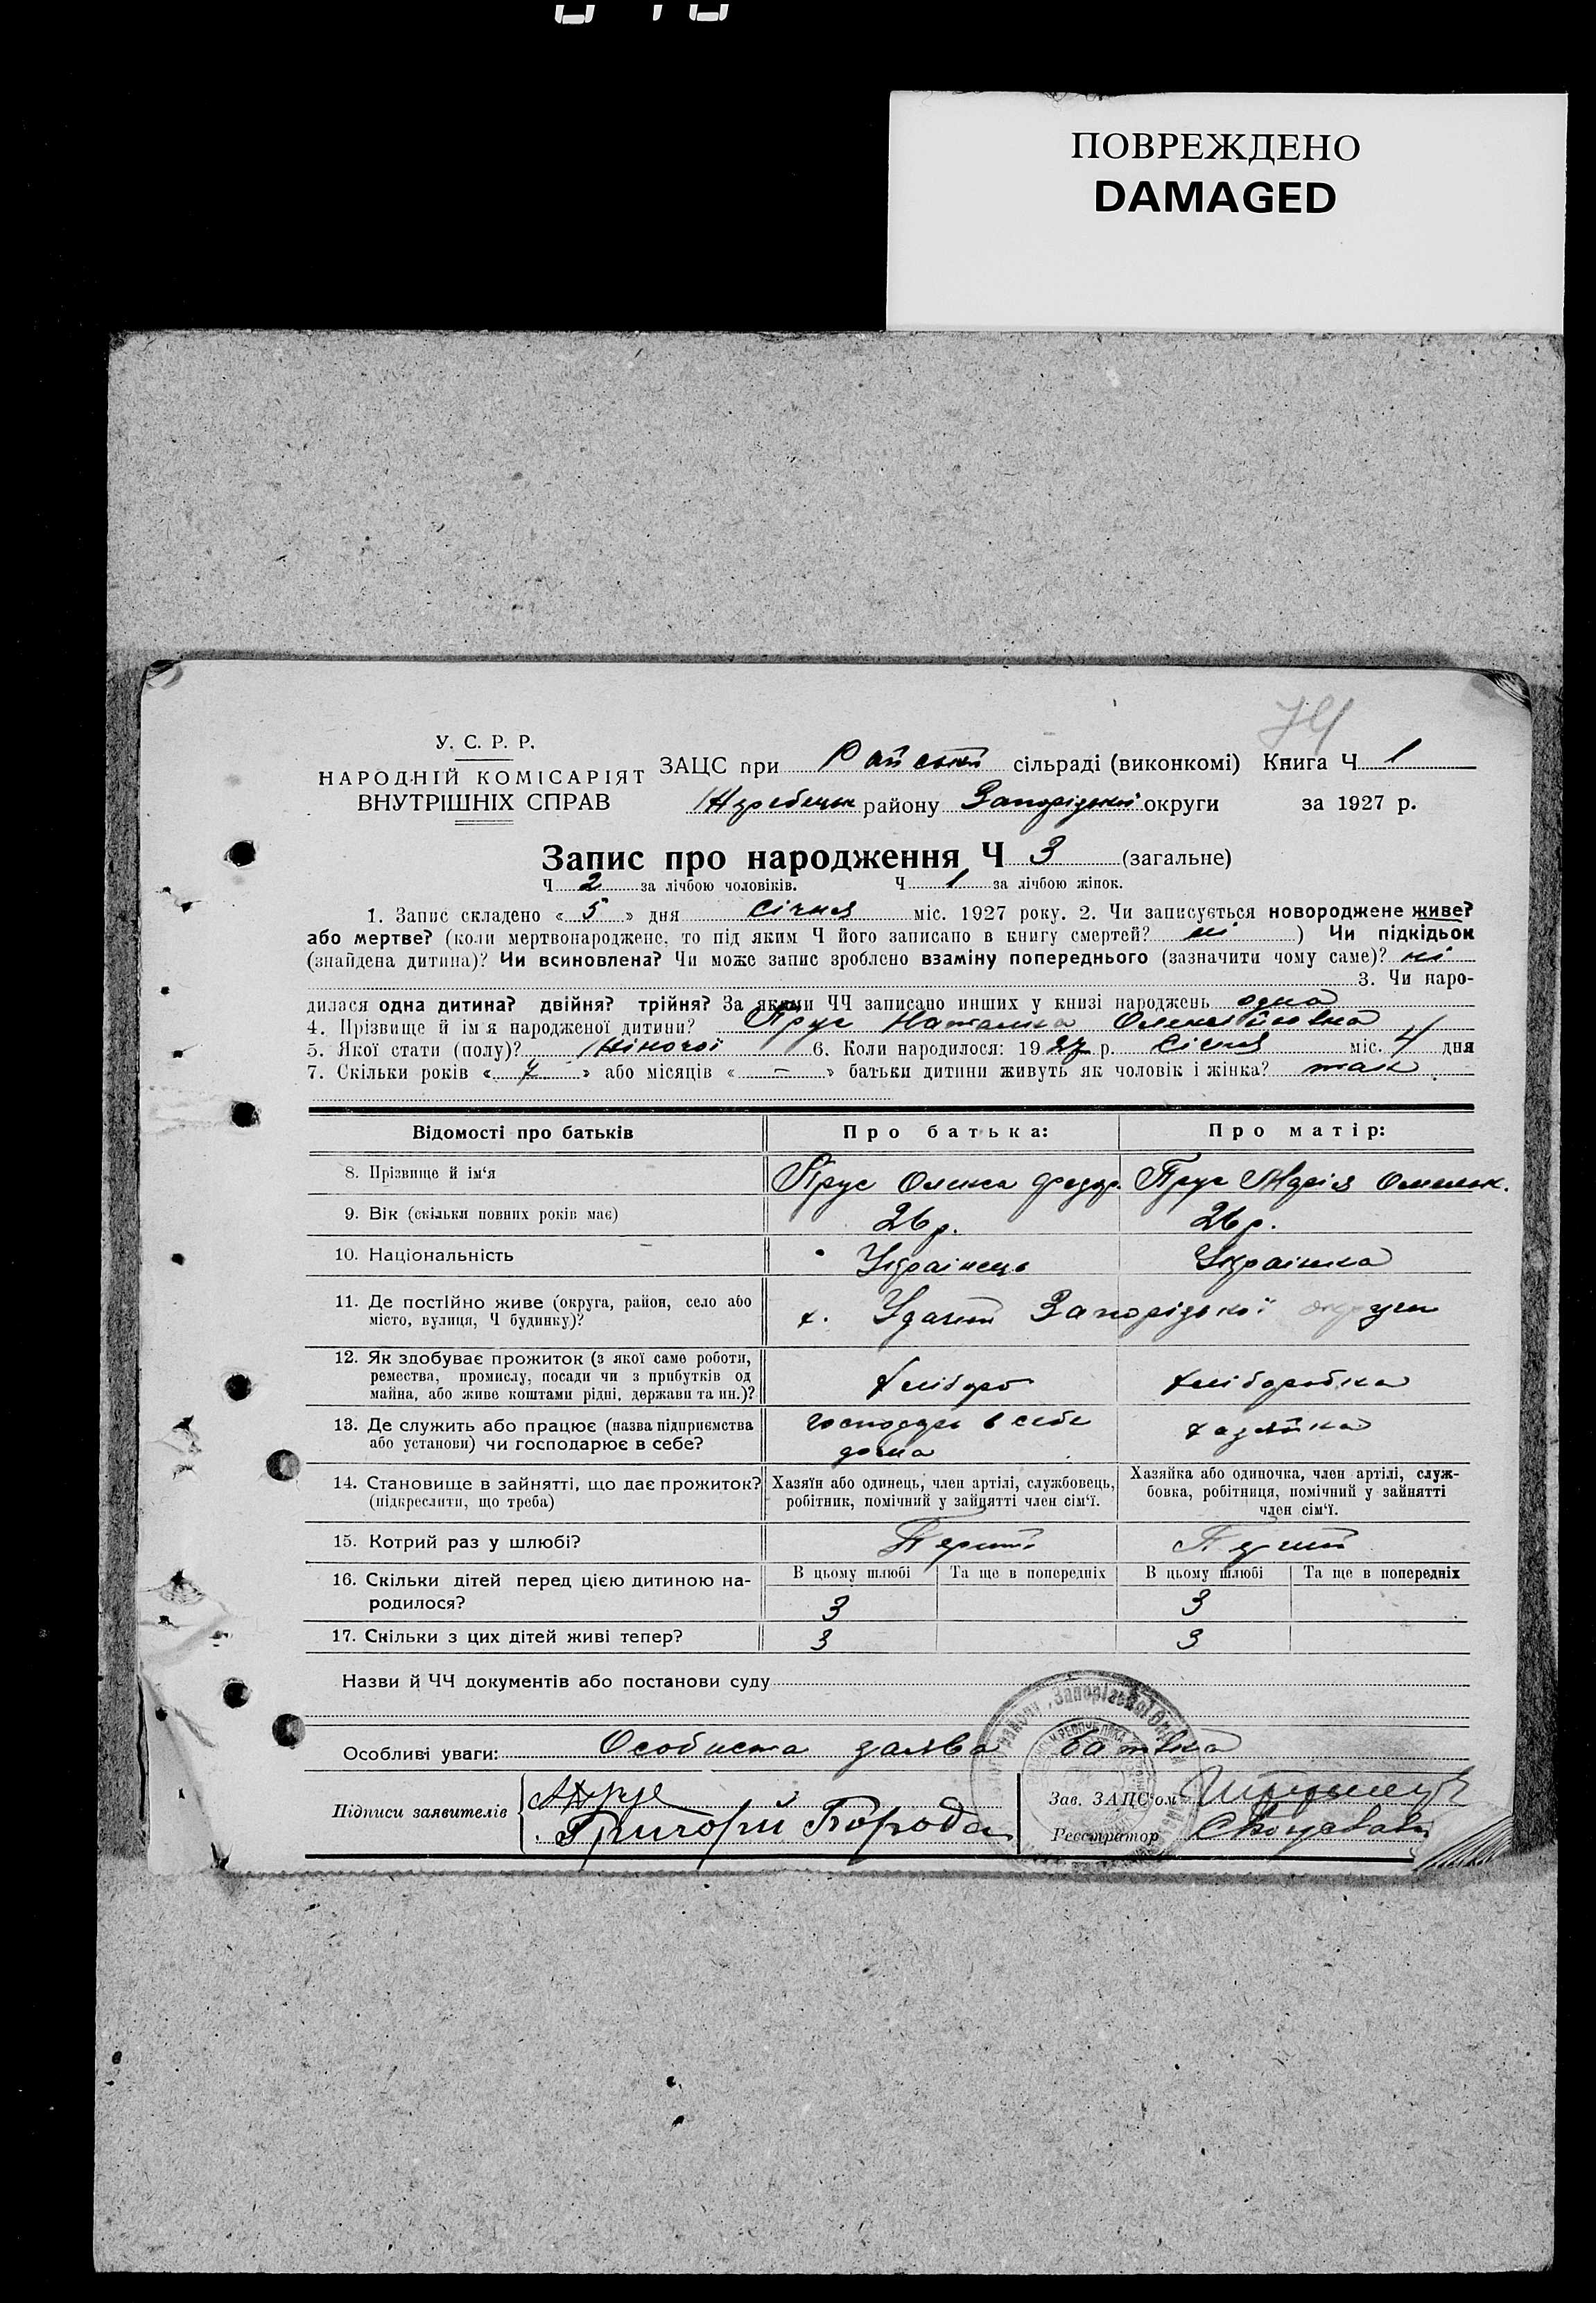 ПОВРЕЖДЕНО
DAMAGED
У. С. Р. Р.
НАРОДНІЙ КОМІСАРІЯТ
ВНУТРІШНІХ СПРАВ
ЗАЦС при Райській сільраді (виконкомі) Книга Ч 1
Жеребецьк району Запорізької округи за 1927 р.
Запис про народження Ч 3 (загальне)
Ч 2 за лічбою чоловіків. Ч 1 за лічбою жінок.
1. Запис складено « 5 » дня січня міс. 1927 року. 2. Чи записується новороджене живе?
або мертве? (коли мертвонароджене, то під яким Ч його записано в книгу смертей? ні ) Чи підкідьок
(знайдена дитина)? Чи всиновлена? Чи може запис зроблено взаміну попереднього (зазначити чому саме)? ні
3. Чи наро-
дилася одна дитина? двійня? трійня? За якими ЧЧ записано инших у книзі народжень одна
4. Прізвище й ім'я народженої дитини? Прус Наталка Олексіївна
5. Якої стати (полу)? Жіночої 6. Коли народилося: 1927 р. Січня міс. 4 дня
7. Скільки років « 7 » або місяців « - » батьки дитини живуть як чоловік і жінка? так
Відомості про батьків Про батька: Про матір:
8. Прізвище й ім'я Прус Олекса Федор. Прус Марія Омельк.
9. Вік (скільки повних років має) 26 р. 26 р.
10. Національність Українець Українка
11. Де постійно живе (округа, район, село або
місто, вулиця, Ч будинку)? х. Удачній Запорізької округи
12. Як здобуває прожиток (з якої саме роботи,
ремества, промислу, посади чи з прибутків од
майна, або живе коштами рідні, держави та ин.)? Хлібороб Хліборобка
13. Де служить або працює (назва підприємства
або установи) чи господарює в себе? господарь в себе
дома хазяйка
14. Становище в зайнятті, що дає прожиток?
(підкреслити, що треба)
Хазяїн або одинець, член артілі, службовець,
робітник, помічний у зайнятті член сім'ї.
Хазяйка або одиночка, член артілі, служ-
бовка, робітниця, помічний у зайнятті
член сім'ї.
15. Котрий раз у шлюбі? Перший Перший
16. Скільки дітей перед цією дитиною на-
родилося?
В цьому шлюбі Та ще в попередніх В цьому шлюбі Та ще в попередніх
3 3
17. Скільки з цих дітей живі тепер? 3 3
Назви й ЧЧ документів або постанови суду
Особливі уваги: Особиста заява батька
Підписи заявителів
Григорій Борода
Зав. ЗАЦС'ом
Реєстратор